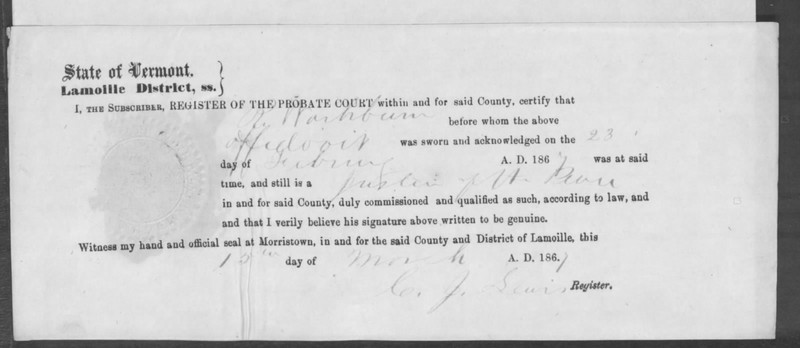 State of Vermont.
Lamoille District, ss. }
I, THE SUBSCRIBER, REGISTER OF THE PROBATE COURT within and for said County, certify that
Washburn before whom the above
affidavit was sworn and acknowledged on the 23
day of A. D. 1867 was at said
time, and still is a Justice of the Peace
in and for said County, duly commissioned and qualified as such, according to law, and
and that I verily believe his signature above written to be genuine.
Witness my hand and official seal at Morristown, in and for the said County and District of Lamoille, this
day of March A. D. 1867
C. J. Lewis Register.